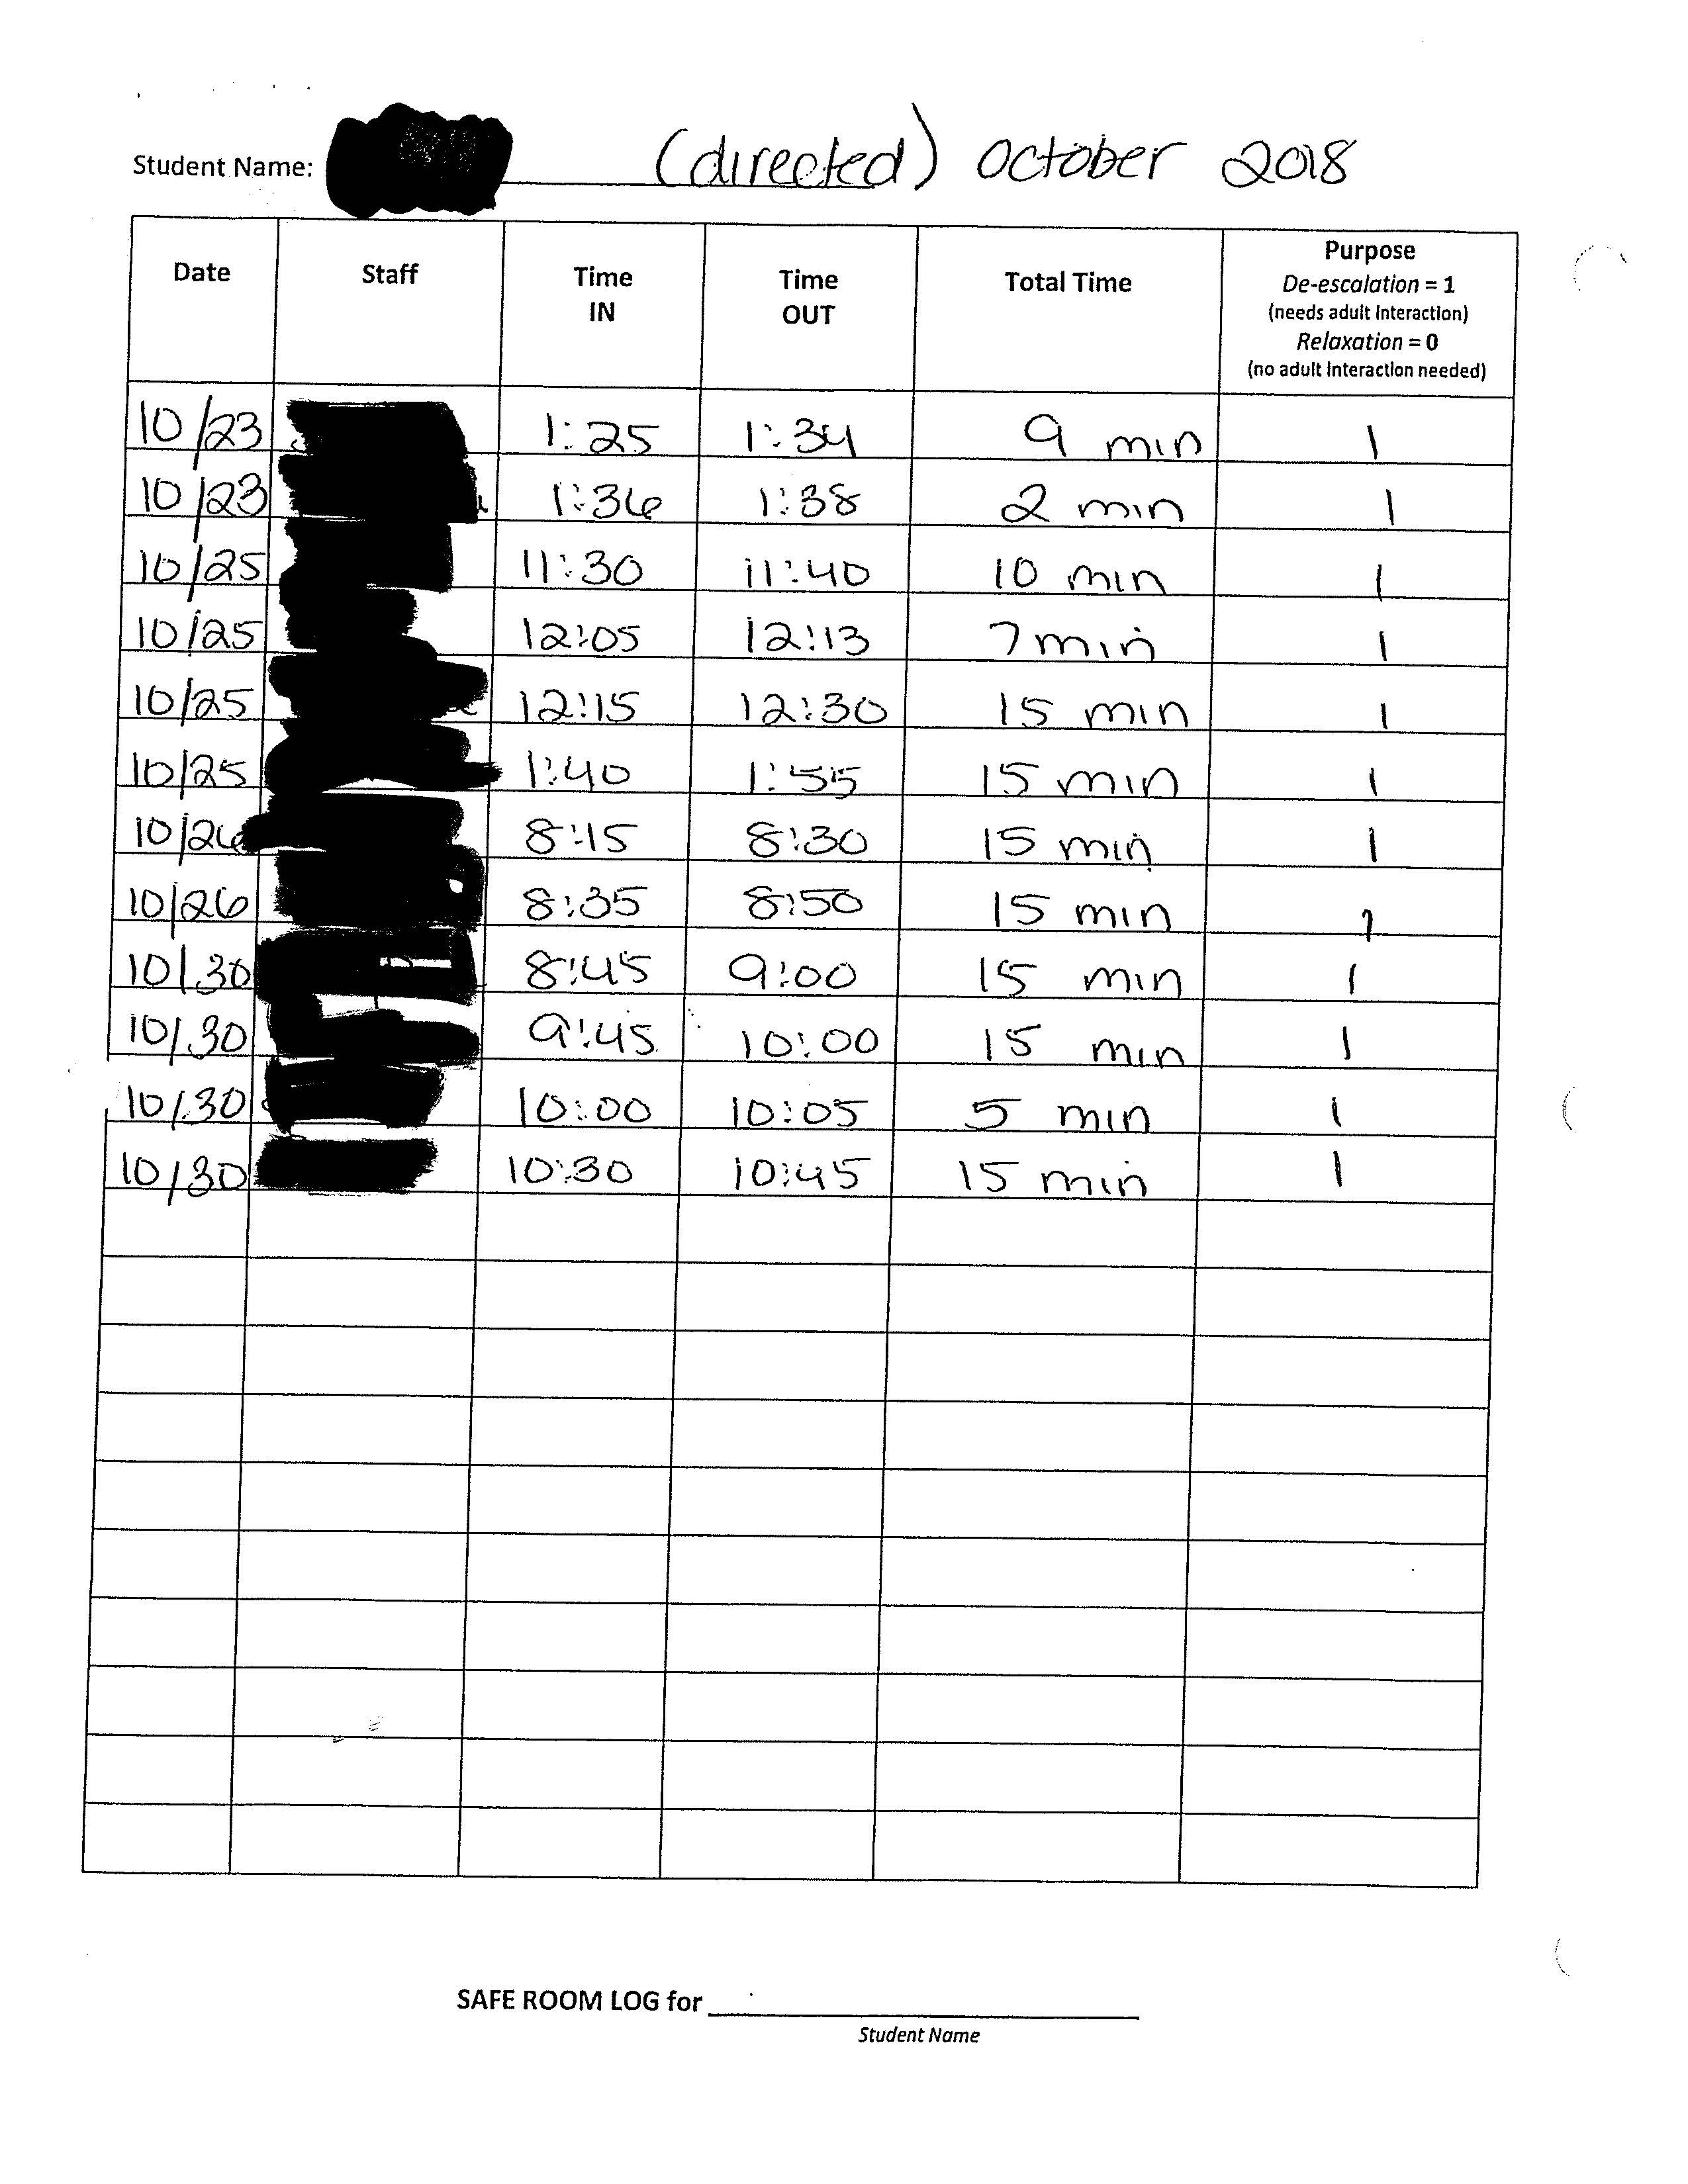 Student Name: (directed) October 2018
Date Staff Time IN Time OUT Total Time Purpose
De-escalation = 1
(needs adult interaction)
Relaxation = 0
(no adult interaction needed)
10/23 1:25 1:34 9 min 1
10/23 1:36 1:38 2 min 1
10/25 11:30 11:40 10 min 1
10/25 12:05 12:13 7 min 1
10/25 12:15 12:30 15 min 1
10/25 1:40 1:55 15 min 1
10/26 8:15 8:30 15 min 1
10/26 8:35 8:50 15 min 1
10/30 8:45 9:00 15 min 1
10/30 9:45 10:00 15 min 1
10/30 10:00 10:05 5 min 1
10/30 10:30 10:45 15 min 1
SAFE ROOM LOG for
Student Name